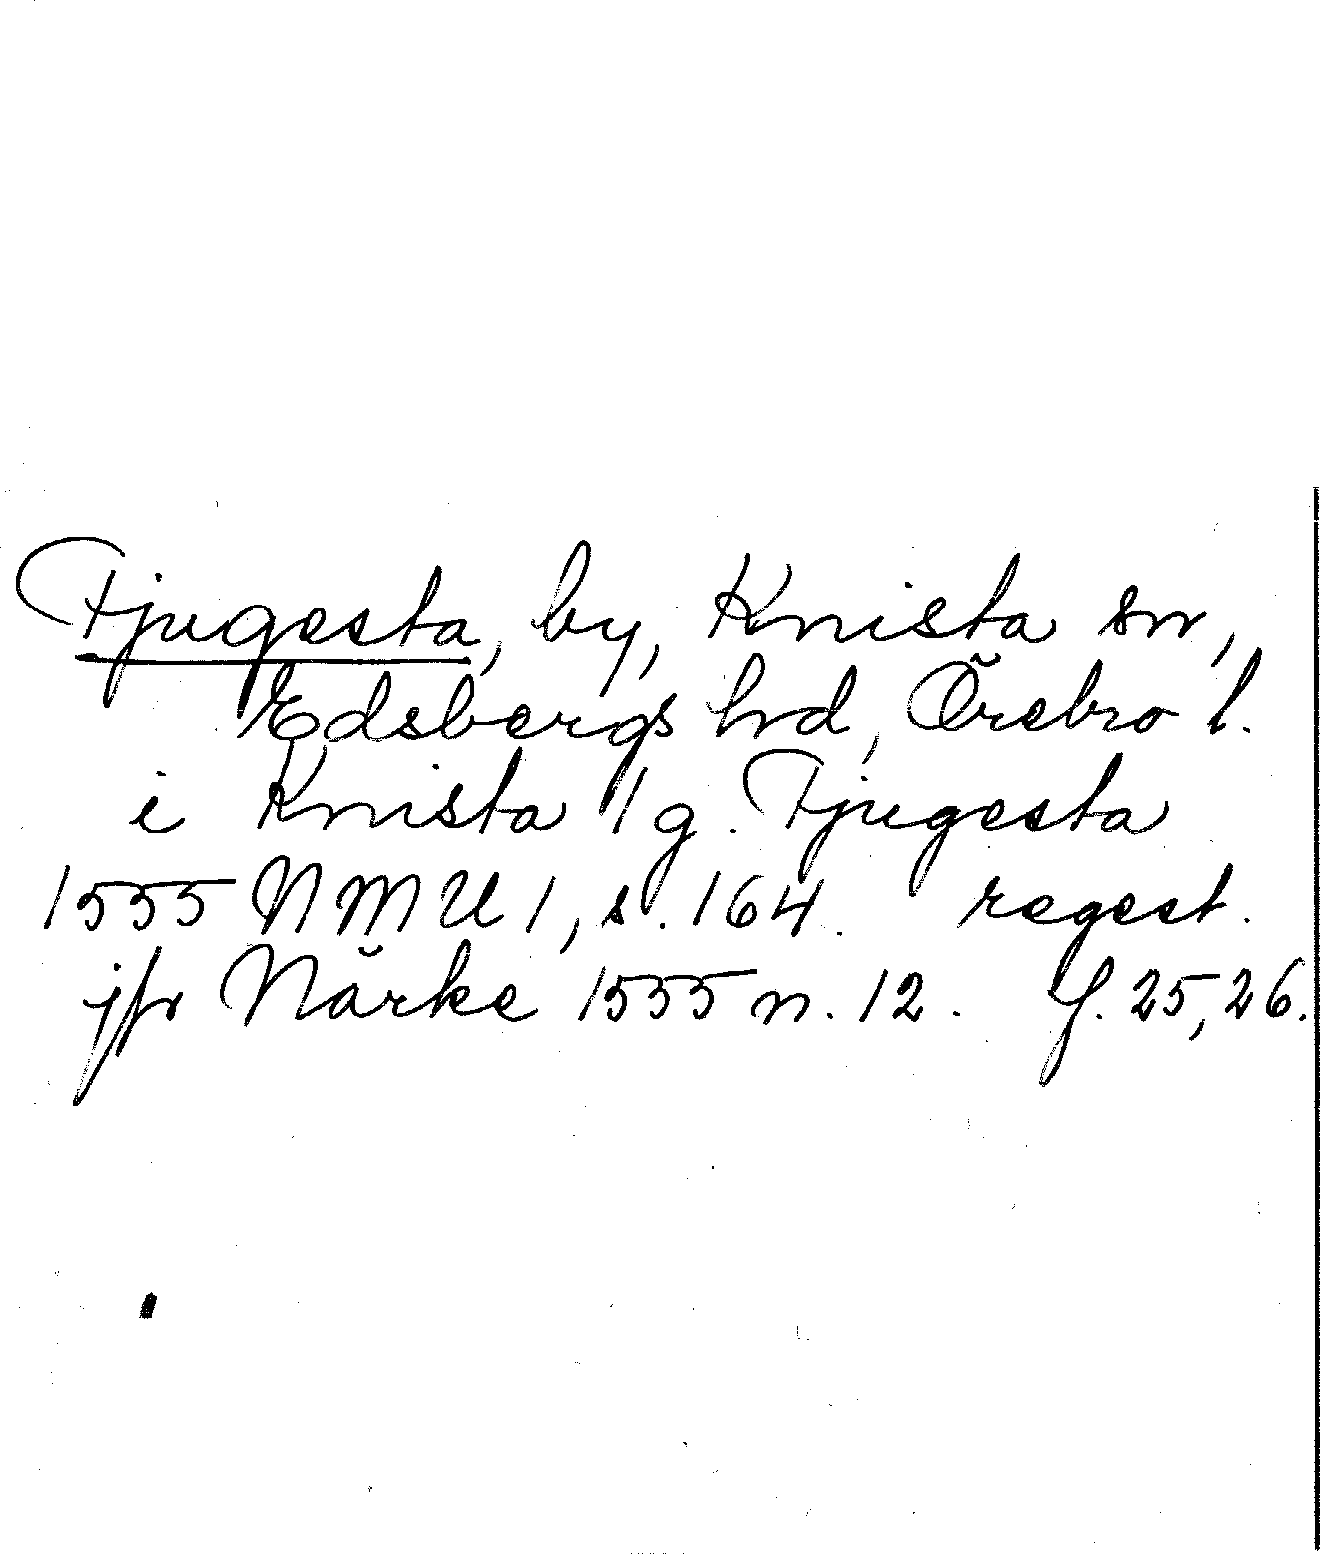 Fjugesta, by, Knista sn,
Edsbergs hrd, Örebro l.
i Knista 1 g. Fjugesta
1555 NMU 1, s. 164. regest.
jfr Närke 1555 n. 12. f. 25, 26.